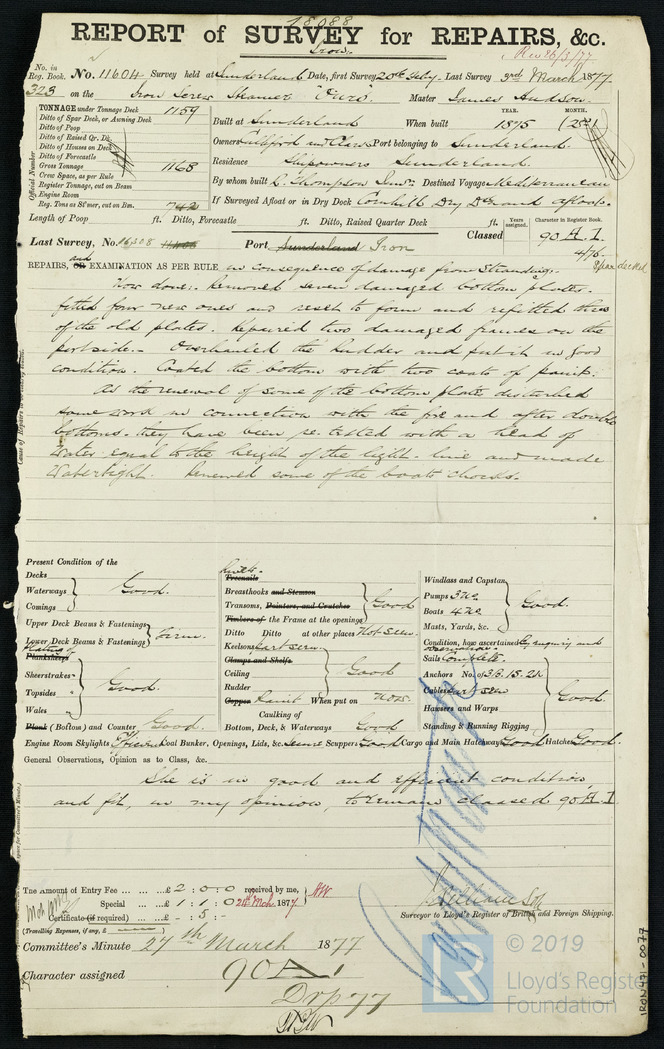 18088
REPORT of SURVEY for REPAIRS, &c.
Iron.
Rec 26/3/77
No. in Reg. Book. No. 11604 Survey held at Sunderland Date, first Survey 20th Feby. Last Survey 3rd March 1877
323 on the Iron Screw Steamer "Euro". Master James Hudson
TONNAGE under Tonnage Deck 1159
Ditto of Spar Deck, or Awning Deck
Ditto of Poop
Ditto of Raised Qr. Dk.
Ditto of Houses on Deck
Ditto of Forecastle
Gross Tonnage 1168
Crew Space, as per Rule
Register Tonnage, cut on Beam
Engine Room
Reg. Tons as St'mer, cut on Bm. 742
Official Number
YEAR. MONTH.
Built at Sunderland When built 1875
Owners Port belonging to Sunderland.
Residence Shipowners Sunderland.
By whom built R. Thompson Destined Voyage Mediterranean
If Surveyed Afloat or in Dry Dock Cornhill Dry Dk and afloat.
Length of Poop ft. Ditto, Forecastle ft. Ditto, Raised Quarter Deck ft.
Years assigned. Character in Register Book.
Last Survey, No. 16308 Port Sunderland Iron Classed 90 A.1.
4/76
Spar decked
REPAIRS, and OR EXAMINATION AS PER RULE in consequence of damage from Stranding.
Now done:- Removed seven damaged bottom plates.
fitted four new ones and reset to form and refitted three
of the old plates. Repaired two damaged frames on the
port side.- Overhauled the rudder and put it in good
condition. Coated the bottom with two coats of paint:
As the renewal of some of the bottom plates disturbed
some work in connection with the fore and after double
bottoms. they have been re-tested with a head of
water equal to the height of the light-line and made
watertight. Renewed some of the boats chocks.
Present Condition of the
Decks
Waterways Good.
Comings
Upper Deck Beams & Fastenings
Lower Deck Beams & Fastenings Firm.
Plating of
Planksheers
Sheerstrakes
Topsides Good.
Wales
Plank (Bottom) and Counter Good.
Rivets.
Treenails
Breasthooks and Stemson
Transoms, Pointers, and Crutches Good
Timbers of the Frame at the openings
Ditto Ditto at other places Not seen.
Keelsons part seen.
Clamps and Shelfs
Ceiling Good
Rudder
Copper Paint When put on Now.
Caulking of
Bottom, Deck, & Waterways Good
Windlass and Capstan
Pumps
Boats Good.
Masts, Yards, &c.
Condition, how ascertained By enquiry and
observation.
Sails Complete.
Anchors No. of 3B. 1S. 2K.
Cables part seen Good.
Hawsers and Warps
Standing & Running Rigging
Engine Room Skylights Efficient Coal Bunker, Openings, Lids, &c. Secure Scuppers Good Cargo and Main Hatchway Good Hatches Good.
General Observations, Opinion as to Class, &c.
She is in good and efficient condition,
and fit, in my opinion, to remain classed 90 A.1
The Amount of Entry Fee ... ... £ 2 : 0 : 0 received by me,
Special ... ... £ 1 : 1 : 0 24th Mch. 1877
Certificate (if required) ... £ - : 5 : -
(Travelling Expenses, if any, £ )
Surveyor to Lloyd's Register of British and Foreign Shipping.
Committee's Minute 27th March 1877
Character assigned 90A.1
Drp 77
© 2019
LR
Lloyd's Register
Foundation
IRON471-0077